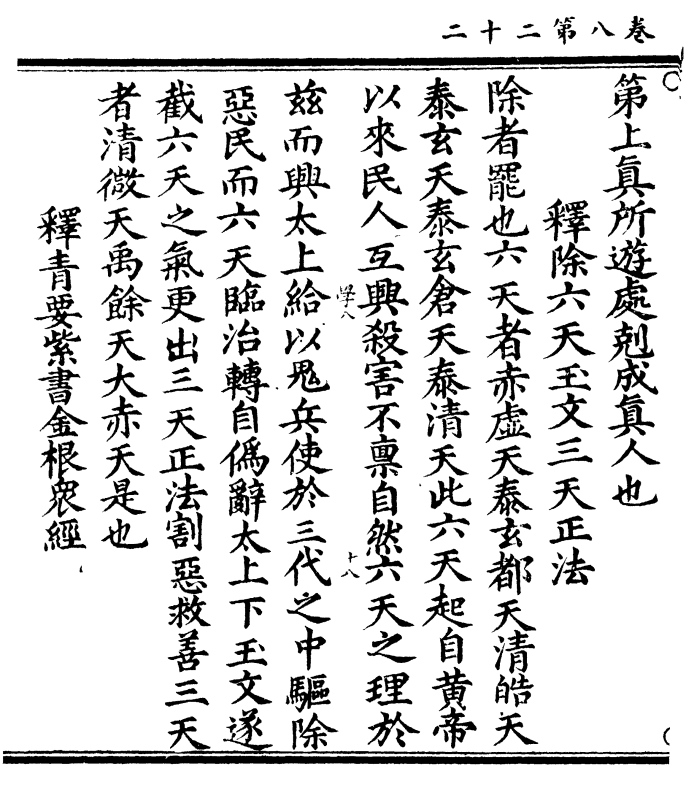 卷八第二十二
第上眞所遊處剋成眞人也
釋除六天玉文三天正法
除者罷也六天者赤虛天泰玄都天清皓天
泰玄天泰玄倉天泰清天此六天起自黄帝
以來民人互興殺害不禀自然六天之理於
學八
十八
兹而興太上給以鬼兵使於三代之中驅除
惡民而六天臨治轉自僞辭太上下玉文遂
截六天之氣更出三天正法割惡救善三天
者清微天禹餘天大赤天是也
釋青要紫書金根衆經